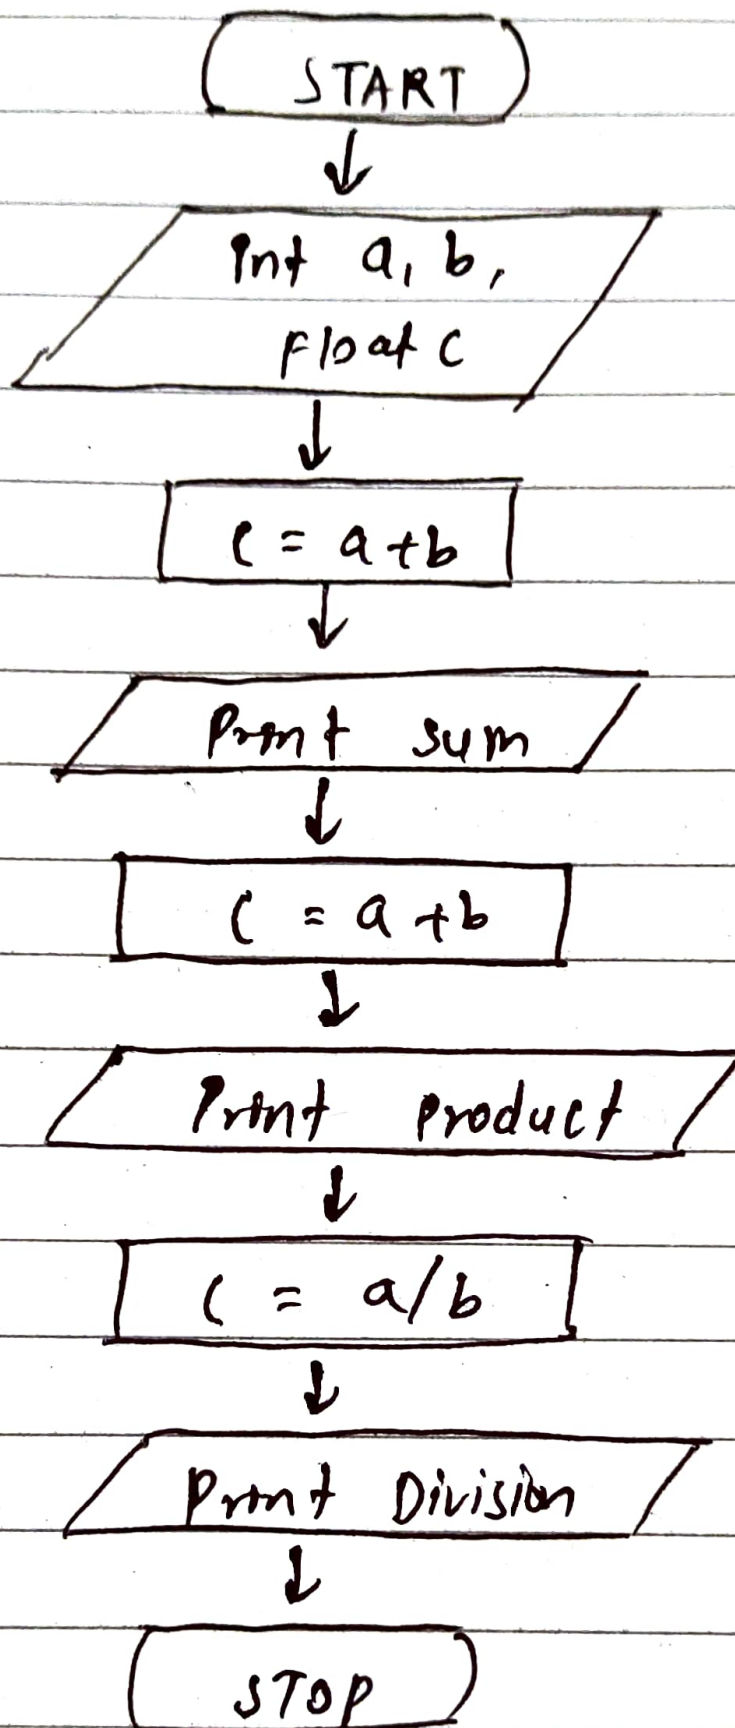 START
int a, b,
Float c
c = a + b
Print sum
c = a + b
Print product
c = a/b
Print Division
STOP